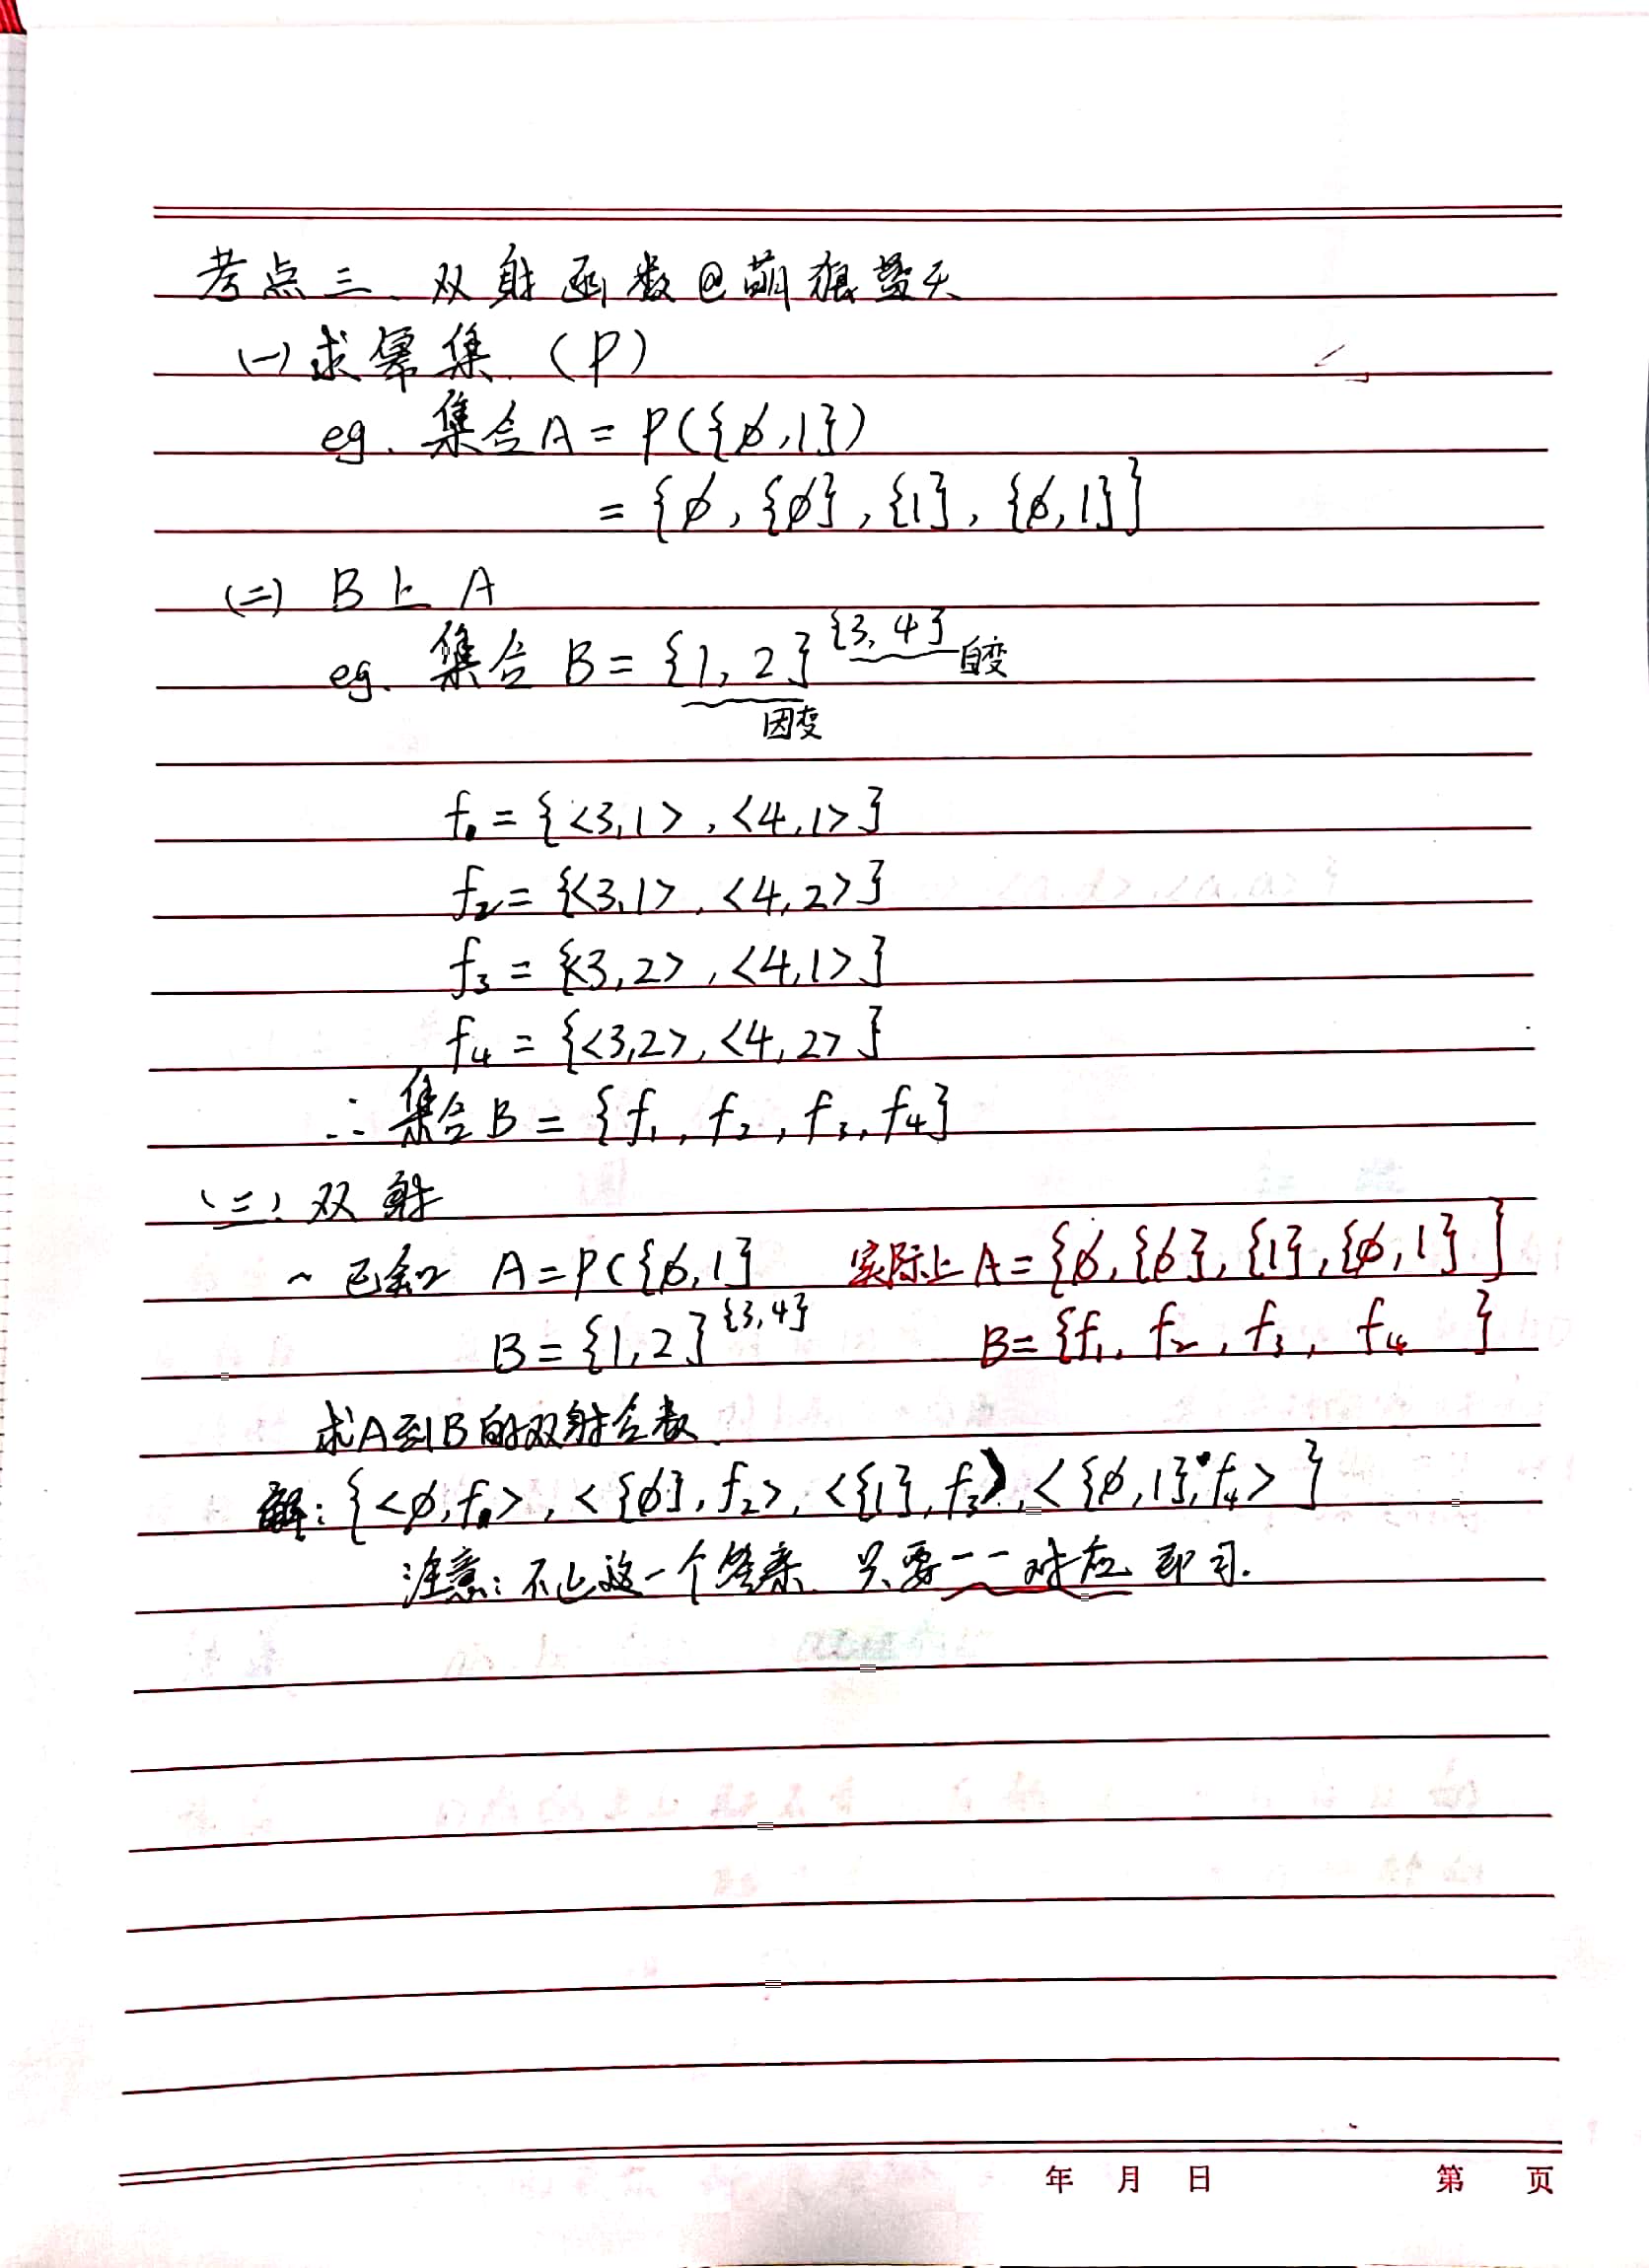 考点三、双射函数@萌狼蓝天
(一)求幂集(P)
eg. 集合A=P({∅,1})
={∅,{∅},{1},{∅,1}}
(二) B上A
eg. 集合 B={1,2}^{3,4} 自变
因变
f₁={<3,1>,<4,1>}
f₂={<3,1>,<4,2>}
f₃={<3,2>,<4,1>}
f₄={<3,2>,<4,2>}
∴集合B={f₁,f₂,f₃,f₄}
(三)双射
~已知 A=P({∅,1} 实际上A={∅,{∅},{1},{∅,1}}
B={1,2}^{3,4} B={f₁,f₂,f₃,f₄}
求A到B的双射含数
解:{<∅,f₁>,<{∅},f₂>,<{1},f₃>,<{∅,1},f₄>}
注意:不止这一个答案 只要一一对应即可.
年 月 日 第 页